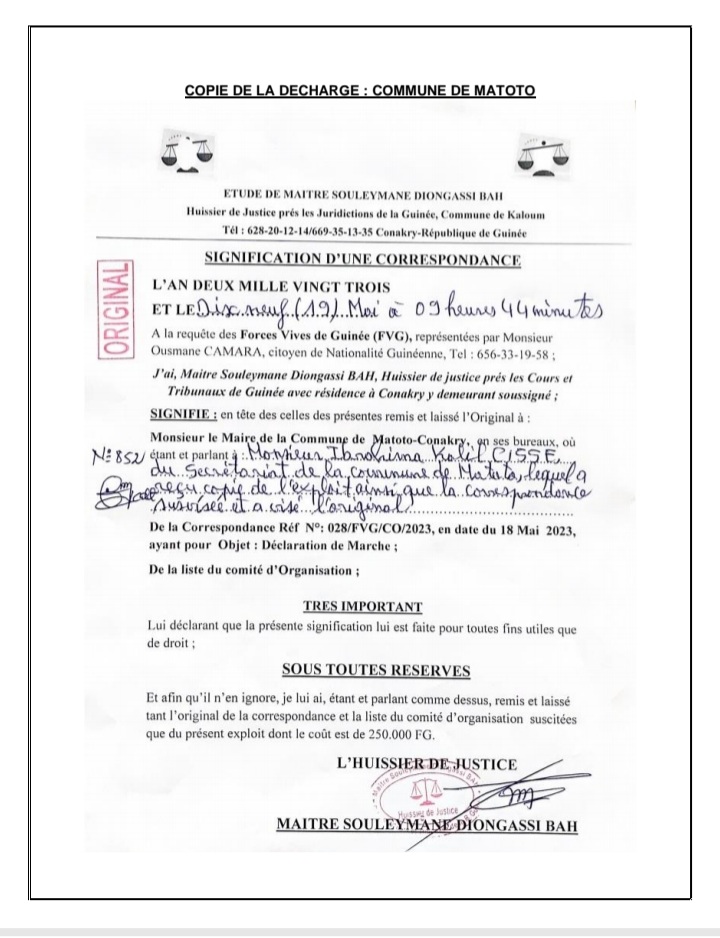 COPIE DE LA DECHARGE : COMMUNE DE MATOTO
ETUDE DE MAITRE SOULEYMANE DIONGASSI BAH
Huissier de Justice prés les Juridictions de la Guinée, Commune de Kaloum
Tél : 628-20-12-14/669-35-13-35 Conakry-République de Guinée
SIGNIFICATION D'UNE CORRESPONDANCE
ORIGINAL
L'AN DEUX MILLE VINGT TROIS
ET LE Dix neuf (19) Mai à 09 heures 44 minutes
A la requête des Forces Vives de Guinée (FVG), représentées par Monsieur
Ousmane CAMARA, citoyen de Nationalité Guinéenne, Tel : 656-33-19-58 ;
J'ai, Maitre Souleymane Diongassi BAH, Huissier de justice prés les Cours et
Tribunaux de Guinée avec résidence à Conakry y demeurant soussigné ;
SIGNIFIE : en tête des celles des présentes remis et laissé l'Original à :
Monsieur le Maire de la Commune de Matoto-Conakry, en ses bureaux, où
N: 852 étant et parlant à : Monsieur Ibrahima Kalil CISSE,
du Secrétariat de la commune de Matoto, lequel a
reçu copie de l'exploit ainsi que la correspondance
susvisée et a visé l'original
De la Correspondance Réf N°: 028/FVG/CO/2023, en date du 18 Mai 2023,
ayant pour Objet : Déclaration de Marche ;
De la liste du comité d'Organisation ;
TRES IMPORTANT
Lui déclarant que la présente signification lui est faite pour toutes fins utiles que
de droit ;
SOUS TOUTES RESERVES
Et afin qu'il n'en ignore, je lui ai, étant et parlant comme dessus, remis et laissé
tant l'original de la correspondance et la liste du comité d'organisation suscitées
que du présent exploit dont le coût est de 250.000 FG.
L'HUISSIER DE JUSTICE
Huissier de Justice
MAITRE SOULEYMANE DIONGASSI BAH